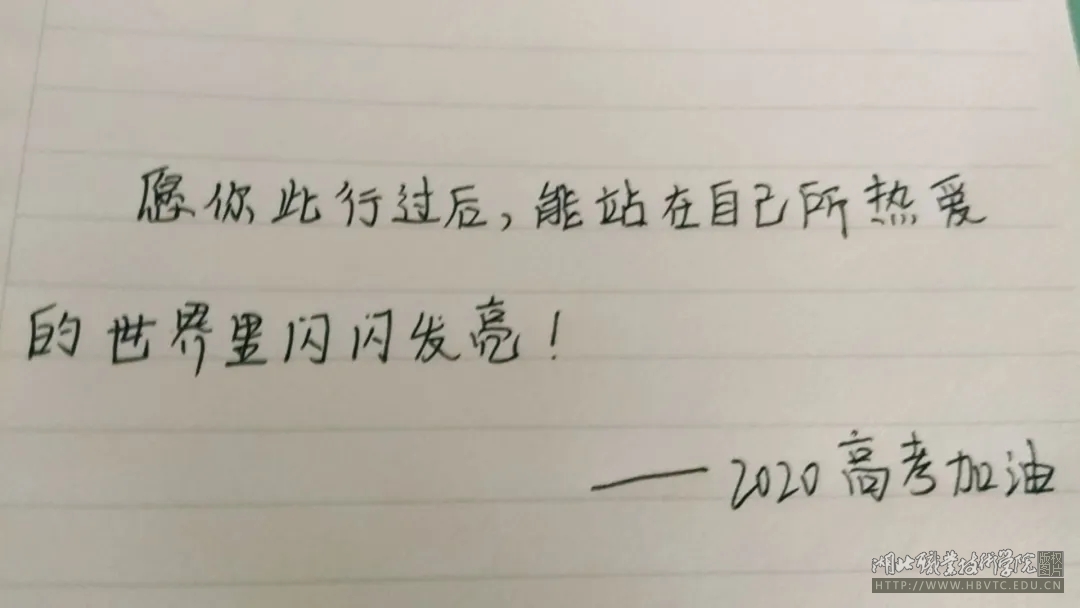 愿你此行过后,能站在自己所热爱
的世界里闪闪发亮!
——2020高考加油
湖北职业技术学院 版权图片
HTTP://WWW.HBVTC.EDU.CN